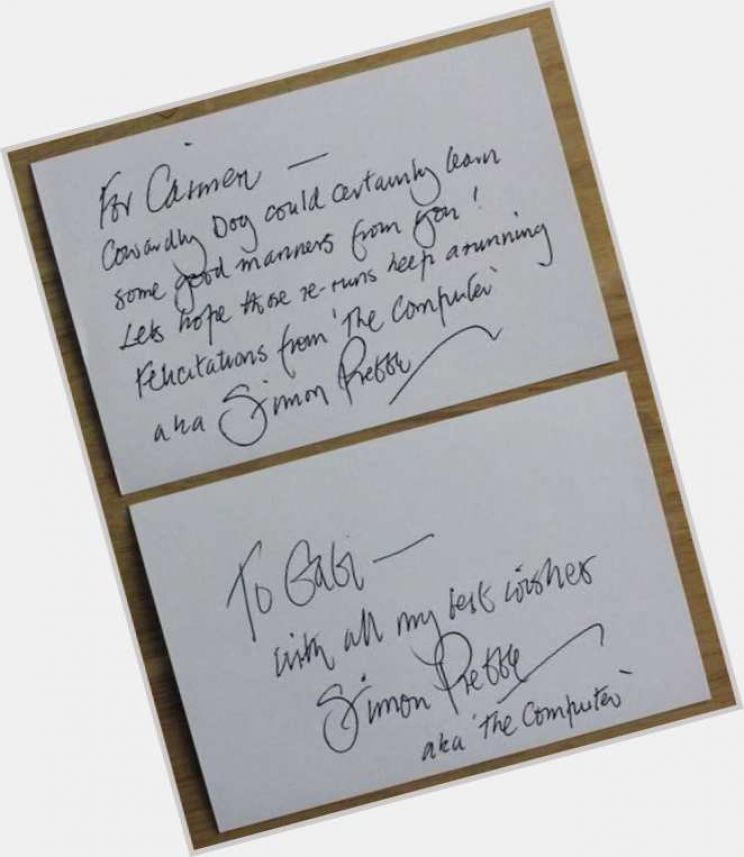 For Carmen —
Cowardly Dog could certainly learn
some good manners from you!
Lets hope those re-runs keep a running
Felicitations from 'The Computer'
aka Simon Prebble
To Gabi —
with all my best wishes
Simon Prebble
aka 'The Computer'